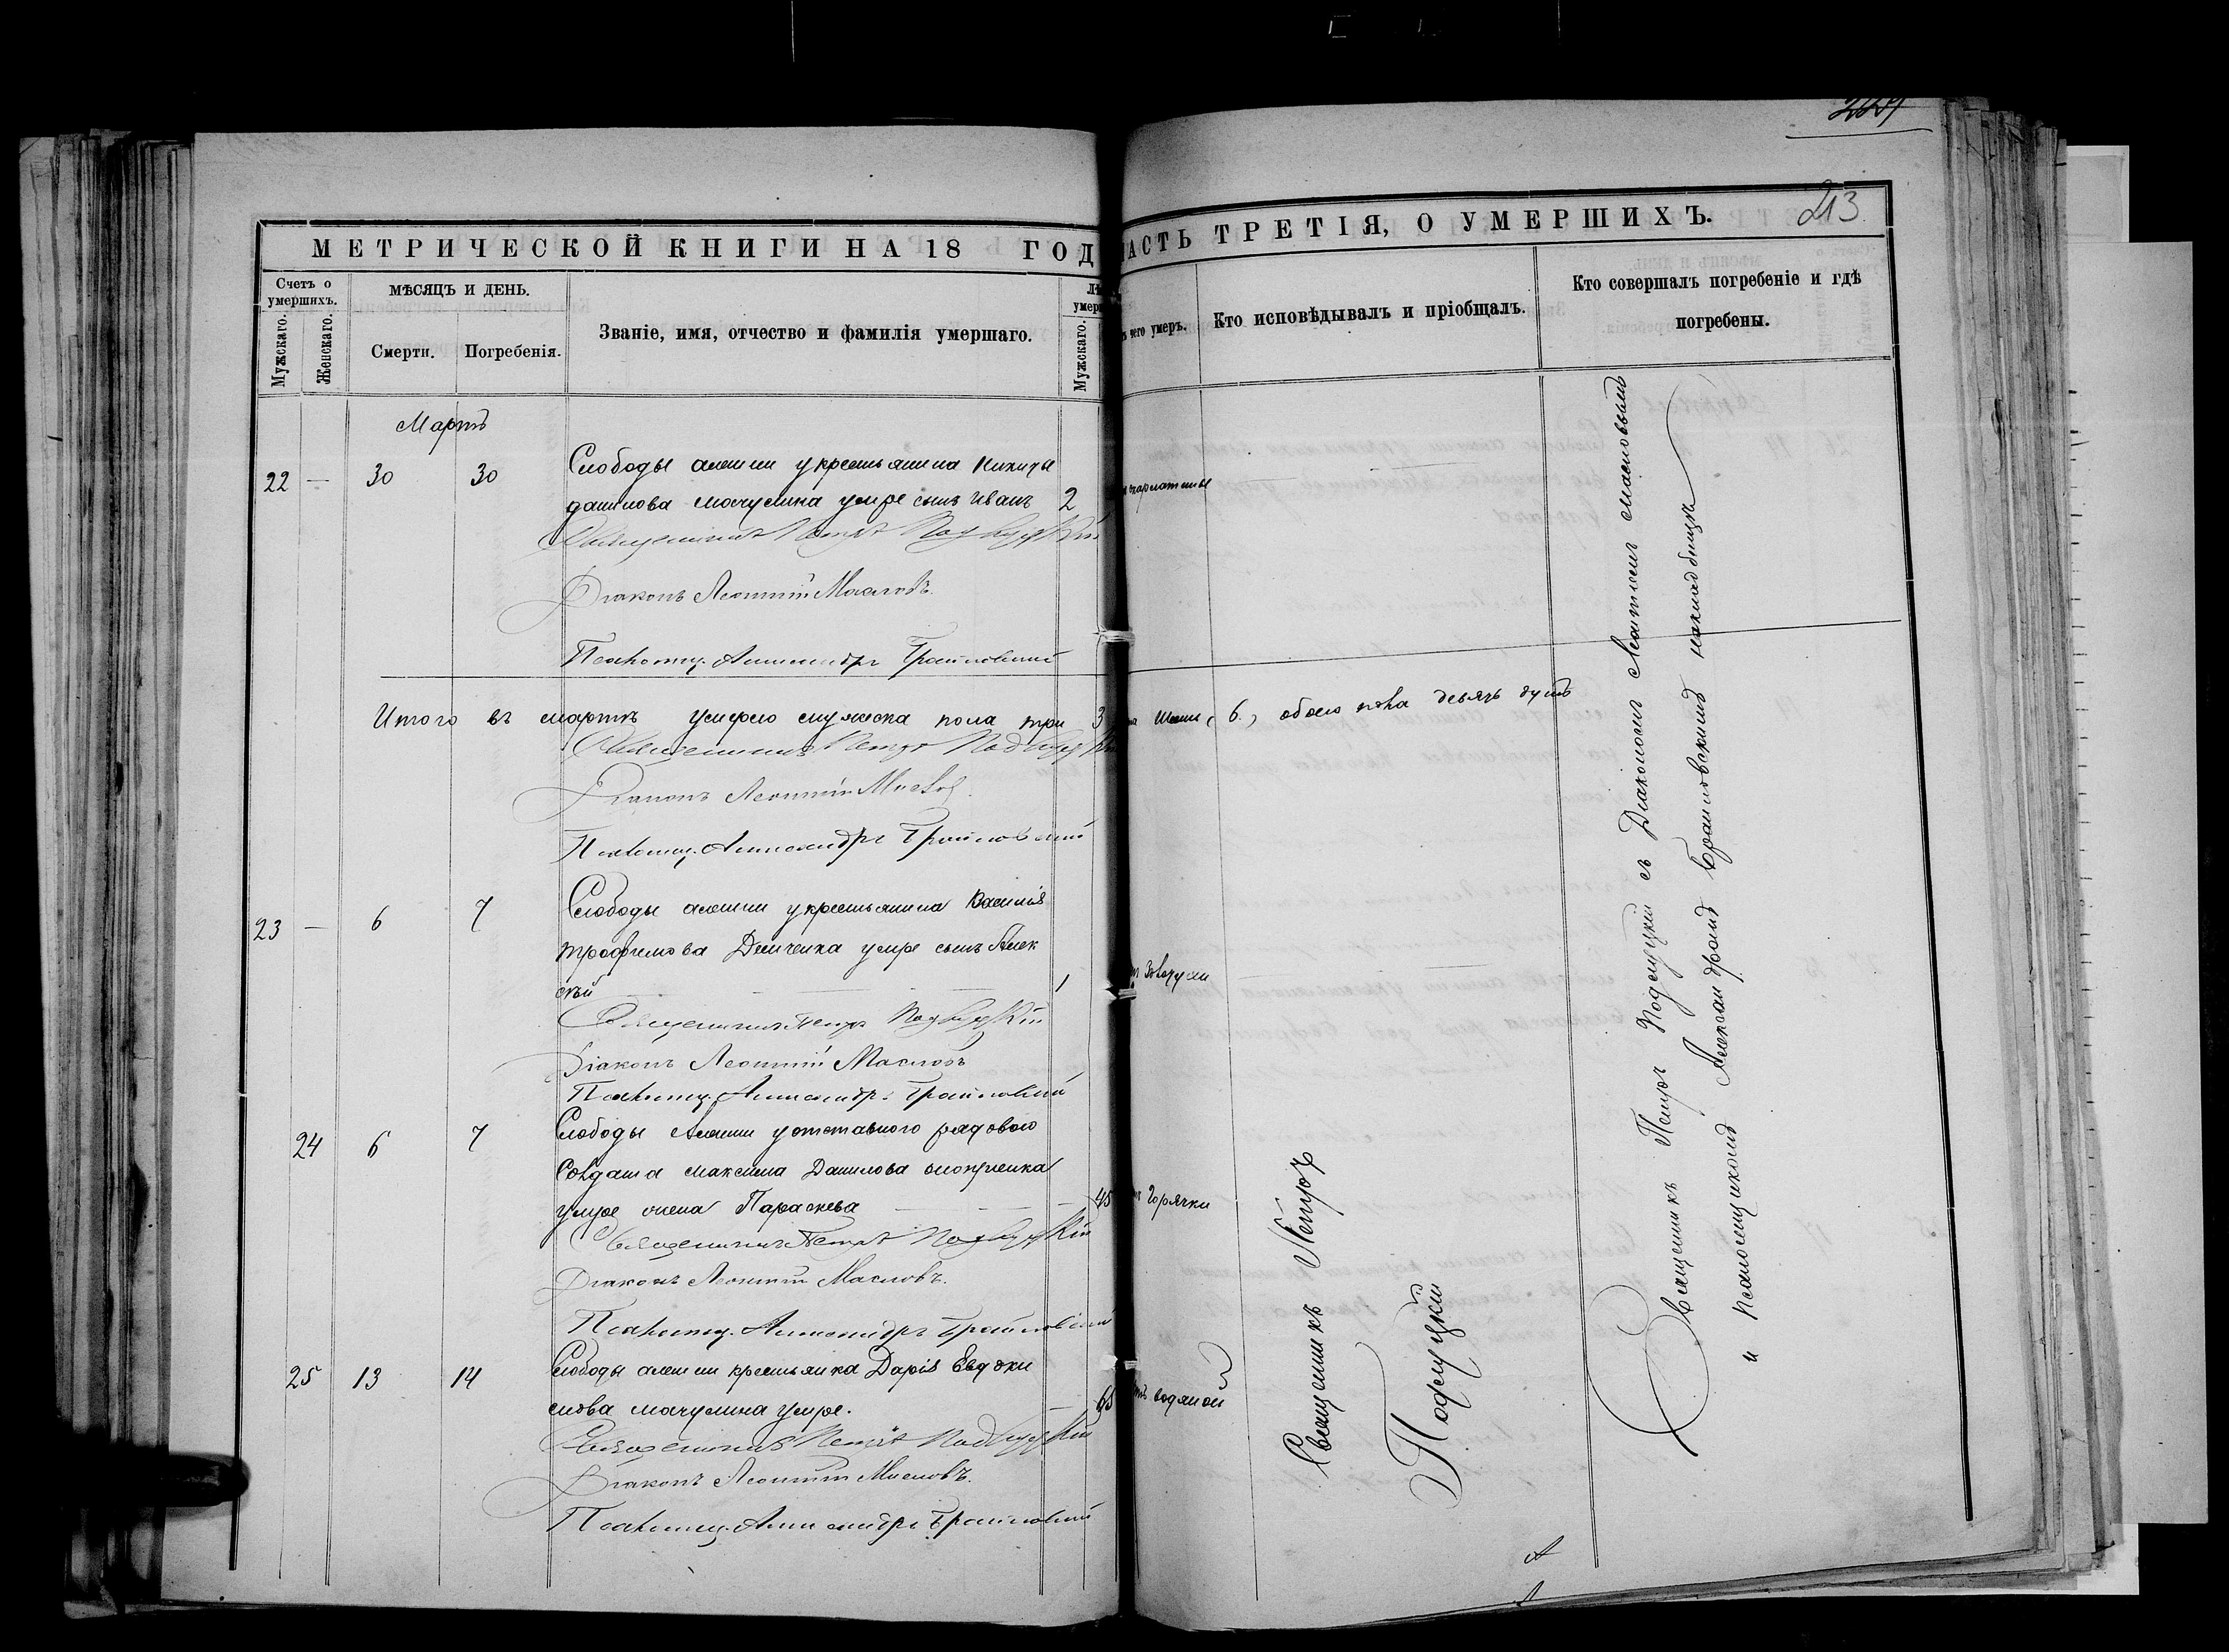 213
МЕТРИЧЕСКОЙ КНИГИ НА 18 ГОД
АСТЬ ТРЕТІЯ, О УМЕРШИХЪ.
Счетъ о умершихъ.
Мужскаго.
Женскаго.
МѢСЯЦЪ И ДЕНЬ.
Смерти.
Погребенія.
Званіе, имя, отчество и фамилія умершаго.
Мужскаго.
чего умеръ.
Кто исповѣдывалъ и пріобщалъ.
Кто совершалъ погребеніе и гдѣ
погребены.
Мартъ
22 — 30 30 Слободы алешки у крестьянина Никиты
данилова умре сынъ Иванъ 2
Священникъ Петръ Подлуцкій
Діаконъ Леонтій Масловъ.
Псаломщ. Александръ Браиловскій
Итого въ мартѣ умерло мужеска пола три 3
обоего пола девять душъ
Священникъ Петръ Подлуцкій
Діаконъ Леонтій Масловъ
Псаломщ. Александръ Браиловскій
23 — 6 7 Слободы алешки у крестьянина Василія
трофимова Демченка умре сынъ Алек
сѣй — 1
Священникъ Петръ Подлуцкій
Діаконъ Леонтій Масловъ
Псаломщ. Александръ Браиловскій
24 6 7 Слободы Алешки у отставного рядового
Солдата максима Данилова
умре жена Параскева — 45 горячки
Священникъ Петръ Подлуцкій
Діаконъ Леонтій Масловъ.
Псаломщ. Александръ Браиловскій
25 13 14 Слободы алешки крестьянка Дарія Евдоки
мова умре. — 65 водяной
Священникъ Петръ Подлуцкій
Діаконъ Леонтій Масловъ.
Псаломщ. Александръ Браиловскій
Священникъ Петръ
Подлуцкій
Священникъ Петръ Подлуцкій съ Діакономъ Леонтіемъ масловымъ
и псаломщикомъ Александромъ Браиловскимъ на кладбищѣ